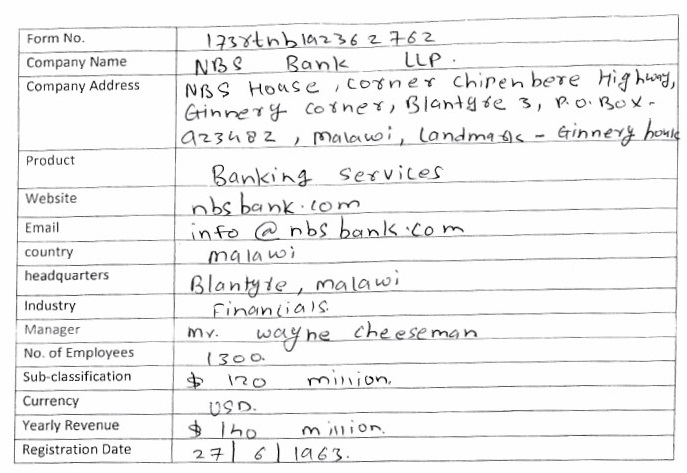 Form No. 173rtnb192362762
Company Name NBS Bank LLP.
Company Address NBS House, corner Chipenbere Highway,
Ginnery corner, Blantyre 3, P.O. Box-
923482, malawi, Landmark - Ginnery bank
Product Banking services
Website nbsbank.com
Email info@nbsbank.com
country malawi
headquarters Blantyre, malawi
Industry Financials.
Manager mr. wayne cheeseman
No. of Employees 1300.
Sub-classification $ 120 million.
Currency USD.
Yearly Revenue $ 140 million.
Registration Date 27/6/1963.